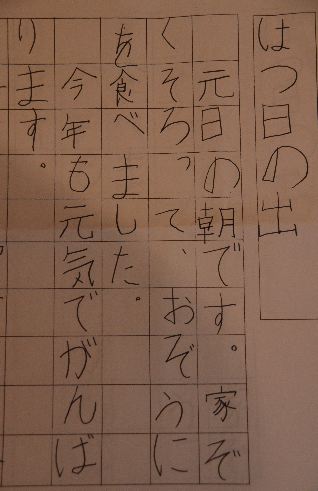 はつ日の出
元日の朝です。家ぞ
くそろって、おぞうに
を食べました。
今年も元気でがんば
ります。